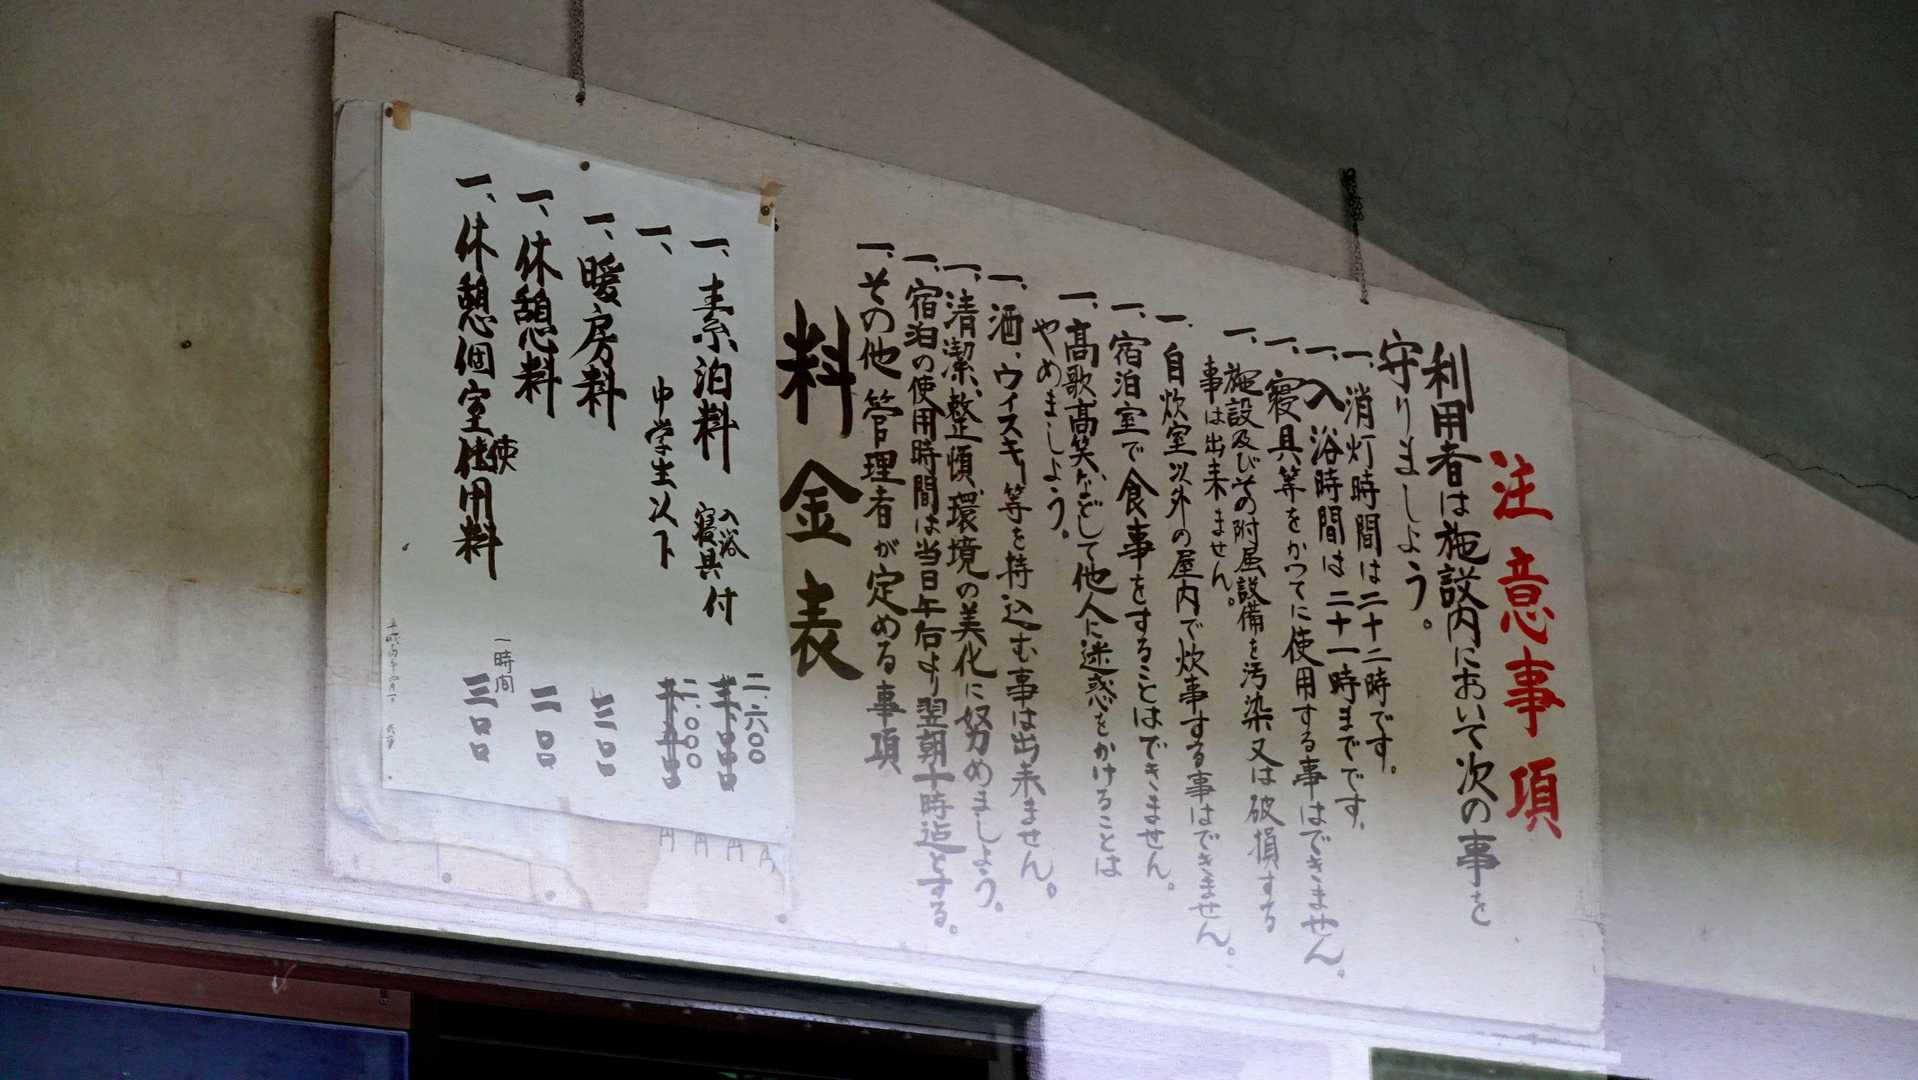 注意事項
利用者は施設内において次の事を
守りましょう。
一、消灯時間は二十二時です。
一、入浴時間は二十一時までです。
一、寝具等をかってに使用する事はできません。
一、施設及びその附属設備を汚染又は破損する
事は出来ません。
一、自炊室以外の屋内で炊事する事はできません。
一、宿泊室で食事をすることはできません。
一、高歌高笑などして他人に迷惑をかけることは
やめましょう。
一、酒、ウイスキー等を持込む事は出来ません。
一、清潔、整頓、環境の美化に努めましょう。
一、宿泊の使用時間は当日午后より翌朝十時迄とする。
一、その他管理者が定める事項
料金表
一、素泊料 入浴寝具付 二、六〇〇
一、中学生以下 二、〇〇〇
一、暖房料 三〇〇
一、休憩料 二〇〇
一、休憩個室使用料 一時間 三〇〇
円
円
円
円